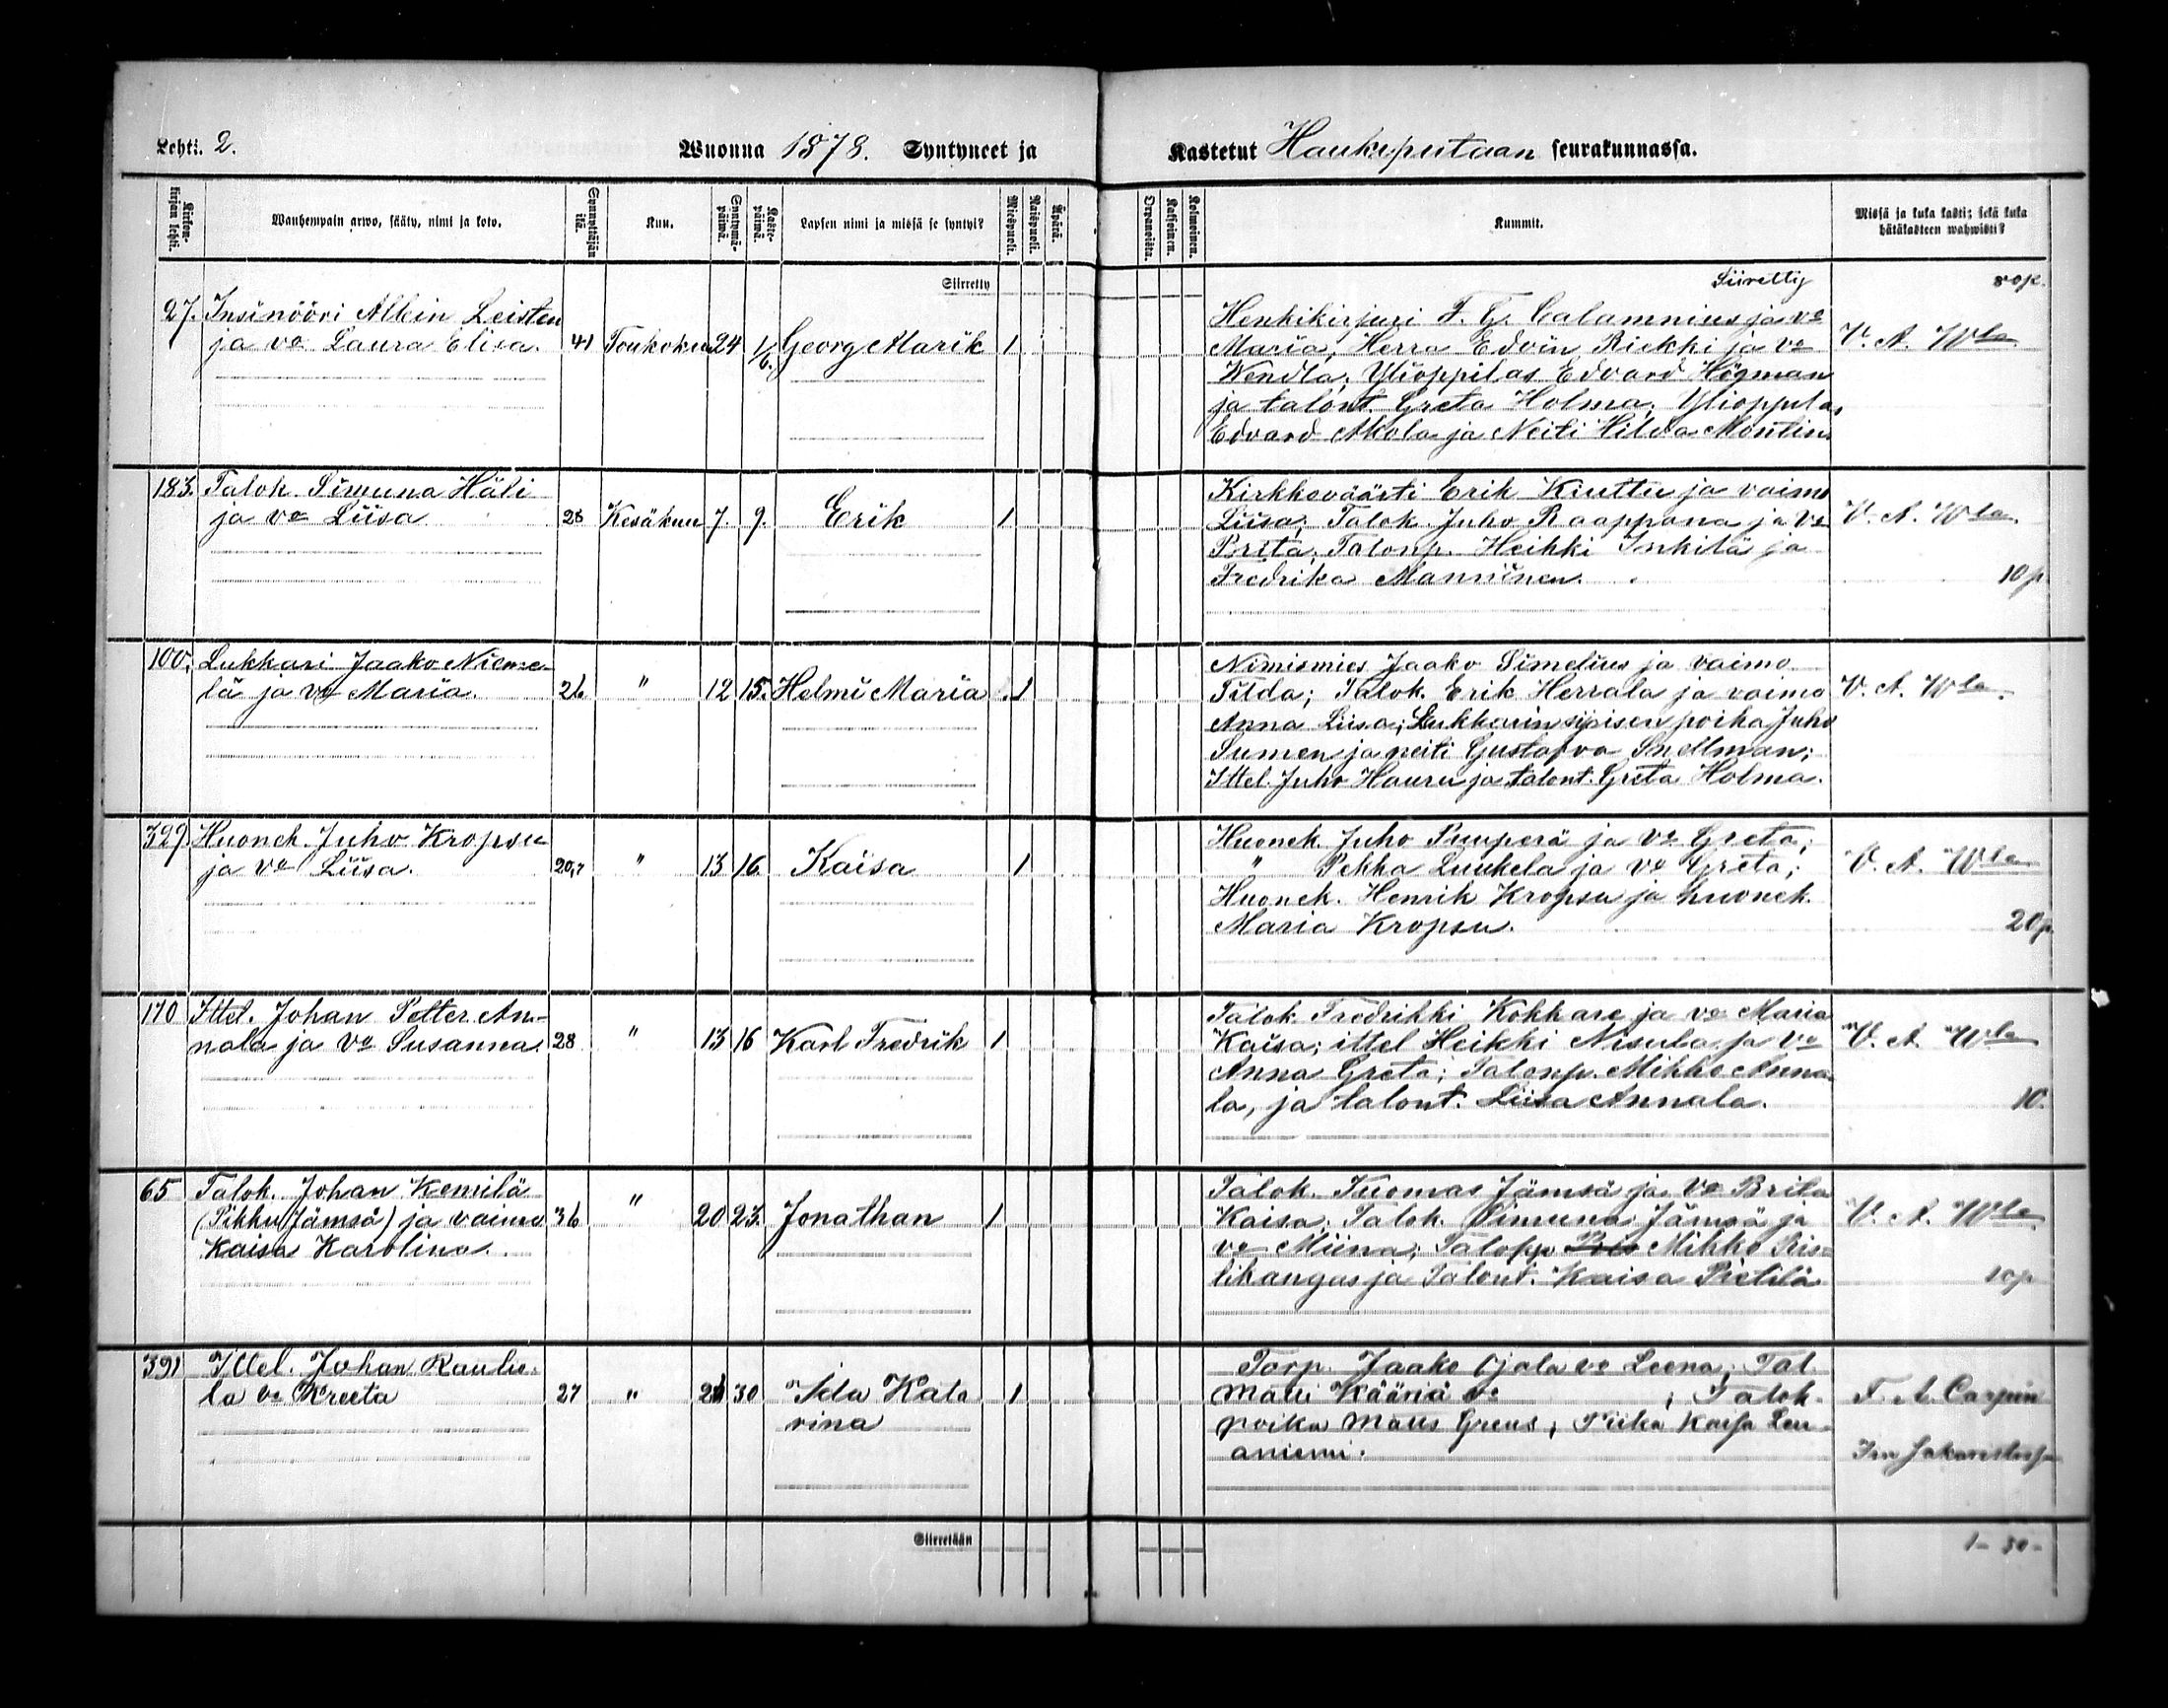 Lehti. 2.
Wuonna 1878. Syntyneet ja
Kastetut Haukiputaan seurakunnassa.
Kirkon-kirjan lehti.
Wanhempain arwo, sääty, nimi ja koto.
Synnyttäjän ikä.
Kuu.
Syntymä-päiwä.
Kaste-päiwä.
Lapsen nimi ja missä se syntyi?
Miespuoli.
Naispuoli.
Äpärä.
Orpanoista.
Kaksoinen.
Kolmoinen.
Kummit.
Missä ja kuka kasti; sekä kuka
hätäkasteen wahwisti?
Siirretty
Siirretty
80p.
27. Insinööri Albin Leisten
ja vo Laura Elisa. 41 Toukokuu 24 1/6. Georg Marik 1
Henkikirjuri F. G. Calamnius ja vo
Maria; Herra Edvin Riekki ja vo
Wendla; Ylioppilas Edvard Högman
ja talont. Greta Holma; Ylioppilas
Edvard Akola ja Neiti Hilda Montin.
V. A. Wla
183. Talok. Simuna Häli
ja vo Liisa 28 Kesäkuu 7. 9. Erik 1
Kirkkoväärti Erik Kiuttu ja vaimo
Liisa; Talok. Juho Raappana ja vo
Brita; Talonp. Heikki Inkilä ja
Fredrika Manninen.
V. A. Wla.
10 p
100. Lukkari Jaako Nieme-
lä ja vo Maria. 26 " 12 15. Helmi Maria 1
Nimismies Jaako Simelius ja vaimo
Tilda; Talok. Erik Herrala ja vaimo
Anna Liisa; Lukkarin sijaisen poika Juho
Sumen ja neiti Gustafva Snellman;
Ittel. Juho Hauru ja talont. Greta Holma.
V. A. Wla.
329 Huonek. Juho Kropsu
ja vo Liisa. 20,7 " 13 16. Kaisa 1
Huonek. Juho Puuperä ja vo Greta;
" Pekka Luukela ja vo Greta;
Huonek. Henrik Kropsu ja huonek.
Maria Kropsu.
V. A. Wla
20p.
170 Ittel. Johan Petter An-
nala ja vo Susanna. 28 " 13 16 Karl Fredrik 1
Talok. Fredrikki Kokhare ja vo Maria
Kaisa; ittel Heikki Nisula ja vo
Anna Greta; Talonp. Mikko Anna-
la, ja talont. Liisa Annala.
V. A. Wla
10.
65 Talok. Johan Kemilä
(Pikku Jämsä) ja vaimo 36 " 20 23. Jonathan 1
Kaisa Karolina.
Talok. Tuomas Jämsä ja vo Brita
Kaisa; Talok. Simuna Jämsä ja
vo Miina; Talopp Mikko Ris-
likangas ja Talont. Kaisa Pietilä
V. A. Wla.
10p
391 Ittel. Johan Raulio-
la vo Kreeta 27 " 30 Ida Kata 1
rina
Torp. Jaako Ojala vo Leena; Tal
Matti Kääriä vo ; Talok.
poika Matts Greus; Piika Kaisa Len-
aniemi.
F. A. Carpin
1-30-